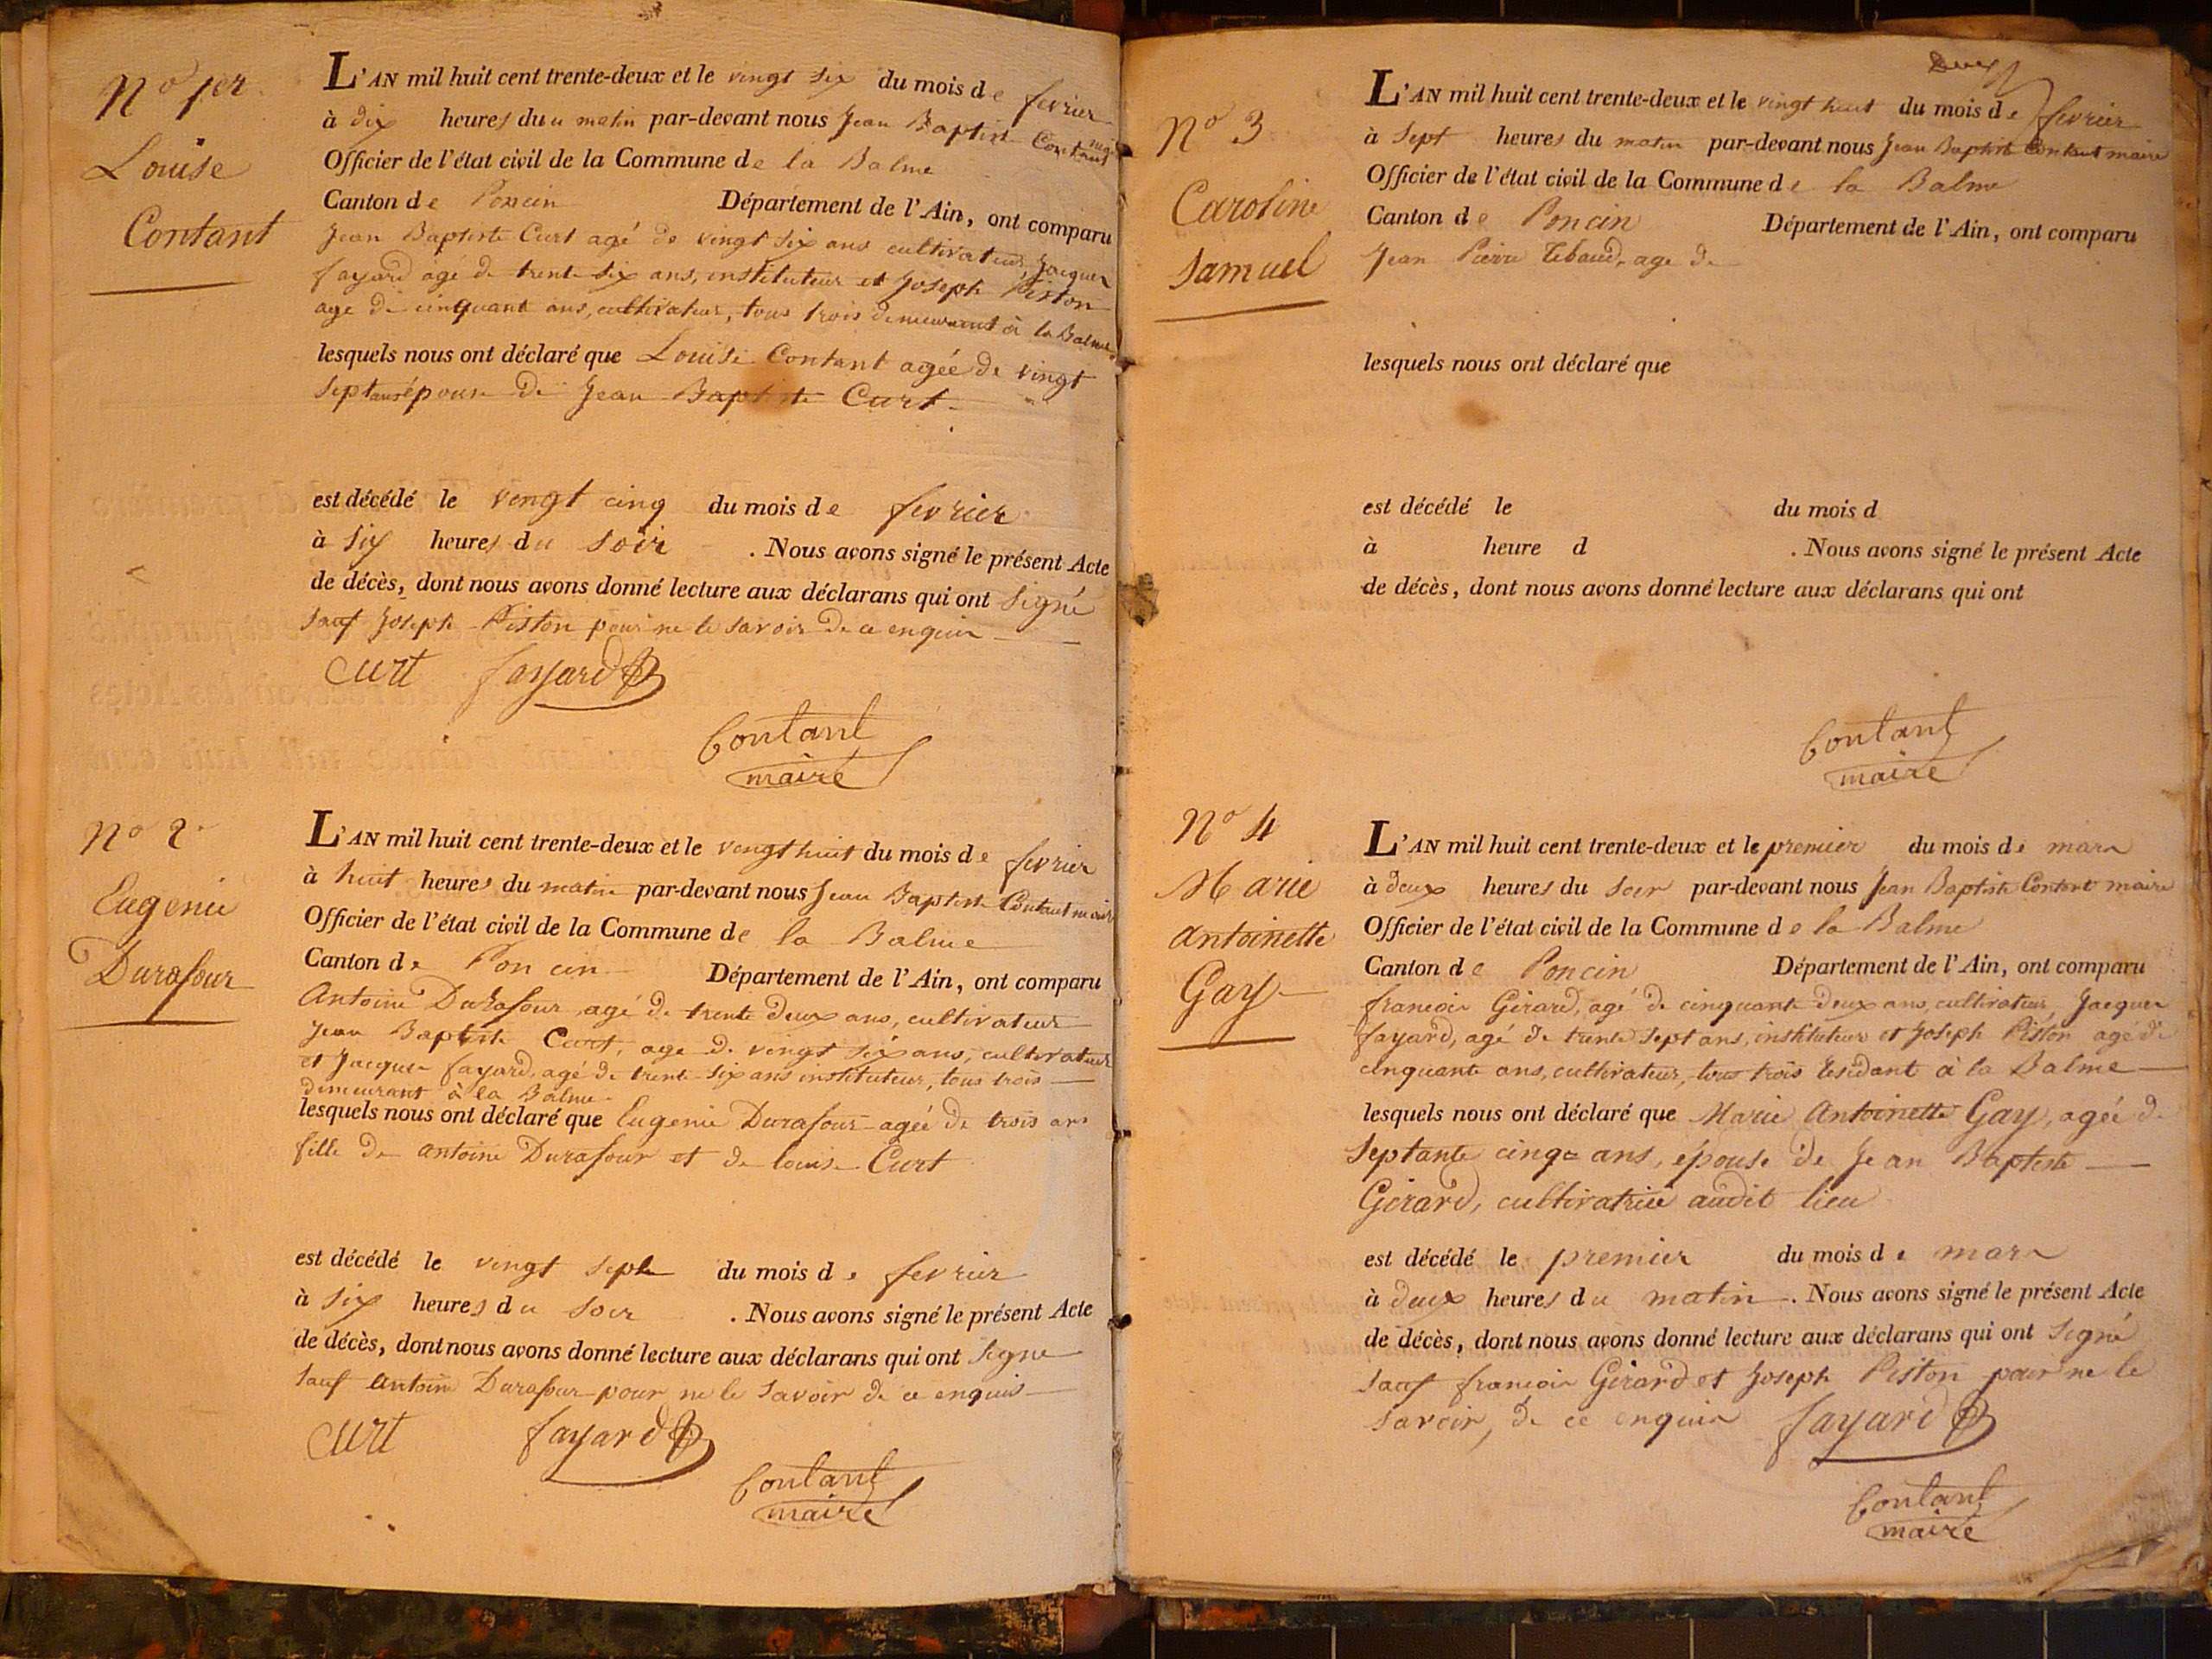 No 1er.
Louise
Contant
L'AN mil huit cent trente-deux et le vingt six du mois de fevrier
à dix heures du u matin par-devant nous Jean Baptiste Contant
Officier de l'état civil de la Commune de la Balme
Canton de Poncin Département de l'Ain, ont comparu
Jean Baptiste Curt agé de vingt six ans cultivateur, Jacques
fayard agé de trente six ans, instituteur et Joseph Piston
age de cinquante ans, cultivateur, tous trois demeurant à la Balme
lesquels nous ont déclaré que Louise Contant agée de vingt
sept ans épouse de Jean Baptiste Curt
est décédé le vingt cinq du mois de fevrier
à six heures du soir . Nous avons signé le présent Acte
de décès, dont nous avons donné lecture aux déclarans qui ont signé
sauf Joseph Piston pour ne le savoir de ce enquis
Curt fayard
Contant
maire
No 2.
Eugenie
Durafour
L'AN mil huit cent trente-deux et le vingt huit du mois de fevrier
à huit heures du matin par-devant nous Jean Baptiste Contant maire
Officier de l'état civil de la Commune de la Balme
Canton de Poncin Département de l'Ain, ont comparu
Antoine Durafour, agé de trente deux ans, cultivateur
Jean Baptiste Curt, age de vingt six ans, cultivateur
et Jacques fayard, agé de trente six ans instituteur, tous trois
demeurant à la Balme
lesquels nous ont déclaré que Eugenie Durafour agée de trois ans
fille de Antoine Durafour et de louise Curt
est décédé le vingt sept du mois de fevrier
à six heures du soir . Nous avons signé le présent Acte
de décès, dont nous avons donné lecture aux déclarans qui ont signe
sauf Antoine Durafour pour ne le savoir de ce enquis
Curt fayard
Contant
maire
Deux
No 3
Caroline
Samuel
L'AN mil huit cent trente-deux et le vingt huit du mois de fevrier
à sept heures du matin par-devant nous Jean Baptiste Contant maire
Officier de l'état civil de la Commune de la Balme
Canton de Poncin Département de l'Ain, ont comparu
Jean Pierre Tebaud, age de
lesquels nous ont déclaré que
est décédé le du mois d
à heure d . Nous avons signé le présent Acte
de décès, dont nous avons donné lecture aux déclarans qui ont
Contant
maire
No 4
Marie
Antoinette
Gay
L'AN mil huit cent trente-deux et le premier du mois de mars
à deux heures du soir par-devant nous Jean Baptiste Contant maire
Officier de l'état civil de la Commune de la Balme
Canton de Poncin Département de l'Ain, ont comparu
francois Girard, agé de cinquante deux ans, cultivateur, Jacques
fayard, agé de trente sept ans, instituteur et Joseph Piston agé de
cinquante ans, cultivateur, tous trois residant à la Balme
lesquels nous ont déclaré que Marie Antoinette Gay, agée de
septante cinq ans, épouse de Jean Baptiste
Girard, cultivatrice audit lieu
est décédé le premier du mois de mars
à deux heures du matin . Nous avons signé le présent Acte
de décès, dont nous avons donné lecture aux déclarans qui ont signé
sauf francois Girard et Joseph Piston pour ne le
savoir, de ce enquis fayard
Contant
maire